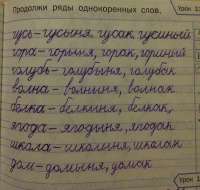 Продолжи ряды однокоренных слов.
Урок 1
гусь-гусыня, гусак, гусиный
гора-горыня, горак, гориний
голубь-голубыня, голубак
волна-волныня, волнак
белка-белкыня, белкак,
ягода-ягодыня, ягодак
школа-школыня, школак
дом-домыня, домак
Урок 1